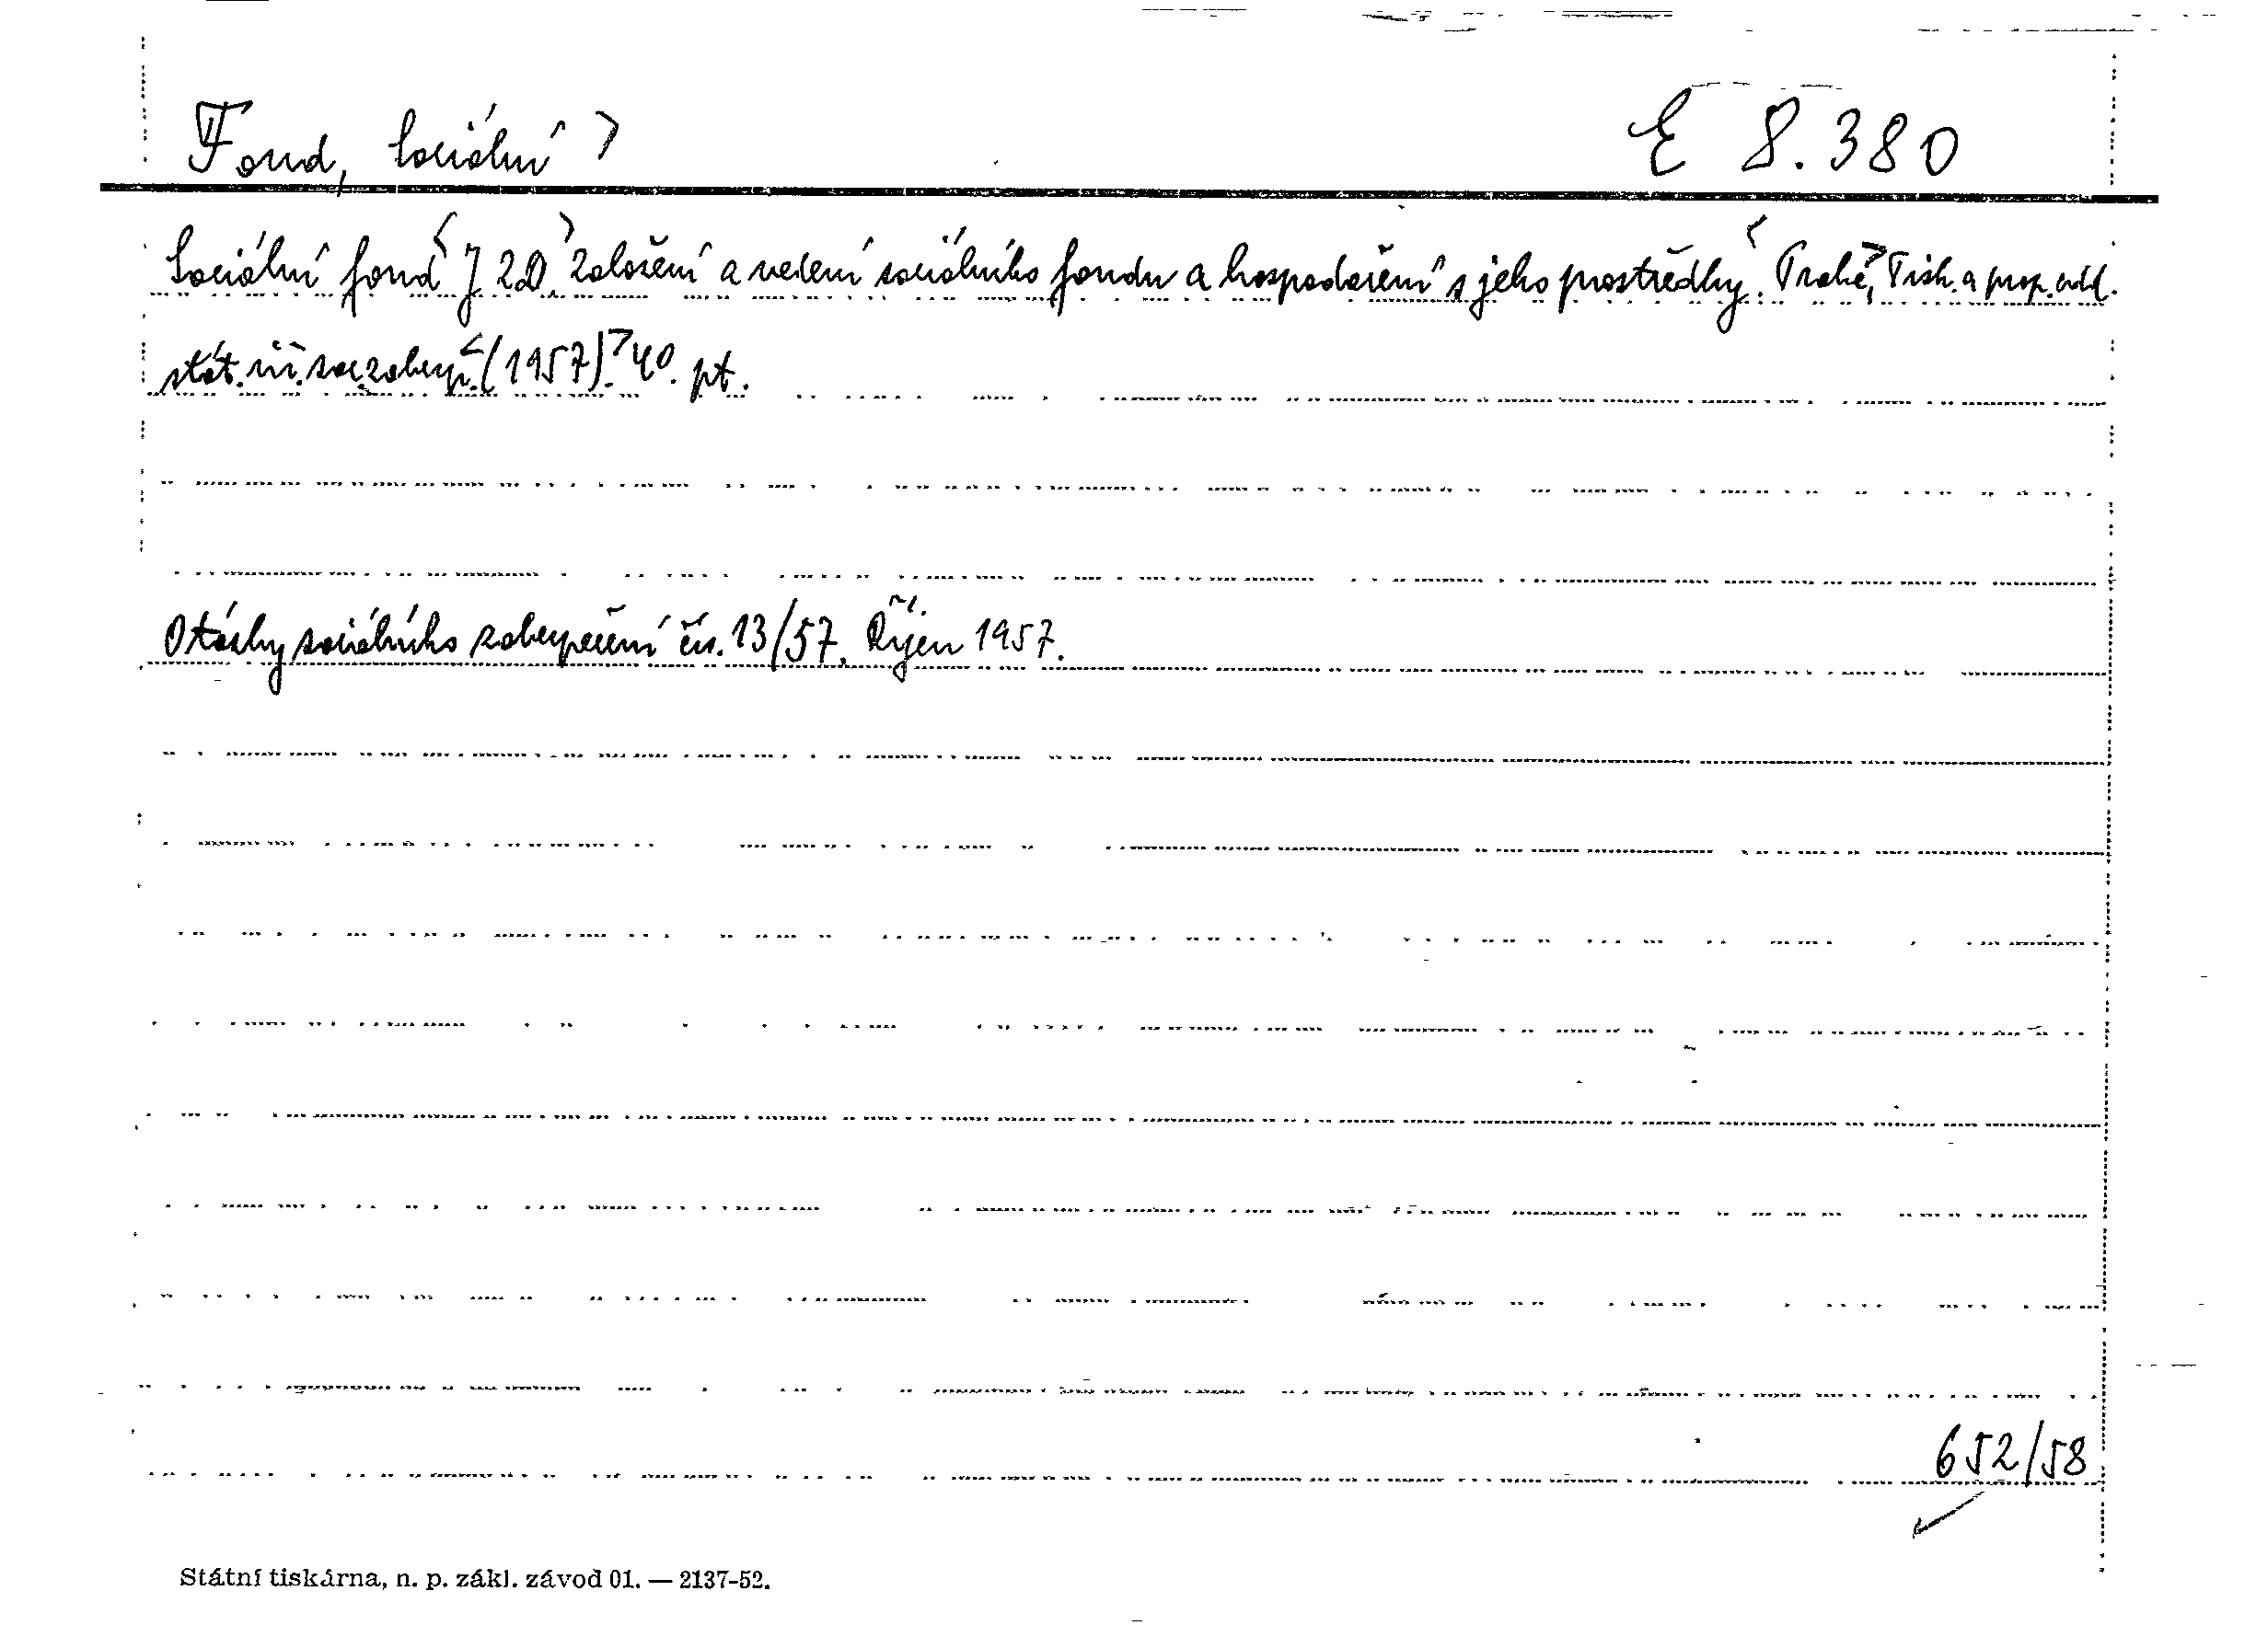 Fond, sociální > E 8.380
Sociální fond < JZD. > Založení a vedení sociálního fondu a hospodaření s jeho prostředky. < Praha, > Tisk. a prop. odd.
stát. úř. soc. zabezp. < (1957). > 40. pt.
Otázky sociálního zabezpečení čís. 13/57. Říjen 1957.
652/58
Státní tiskárna, n. p. zákl. závod 01. — 2137-52.